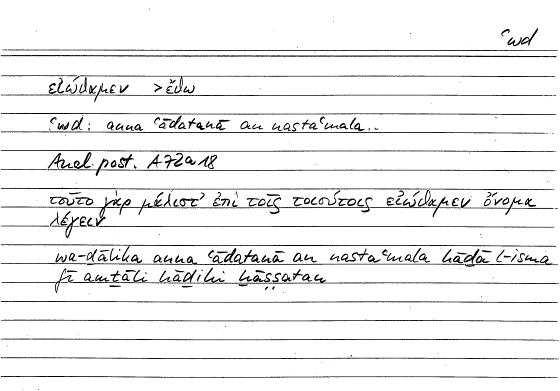 ʿwd
εἰώθαμεν > ἔθω
ʿwd: anna ʿādatanā an nastaʿmala..
Anal. post. A 72a18
τοῦτο γὰρ μάλιστ' ἐπὶ τοῖς τοιούτοις εἰώθαμεν ὄνομα
λέγειν
wa-ḏālika anna ʿādatanā an nastaʿmala hāḏā l-isma
fī amṯāli hāḏihi ḫāṣṣatan